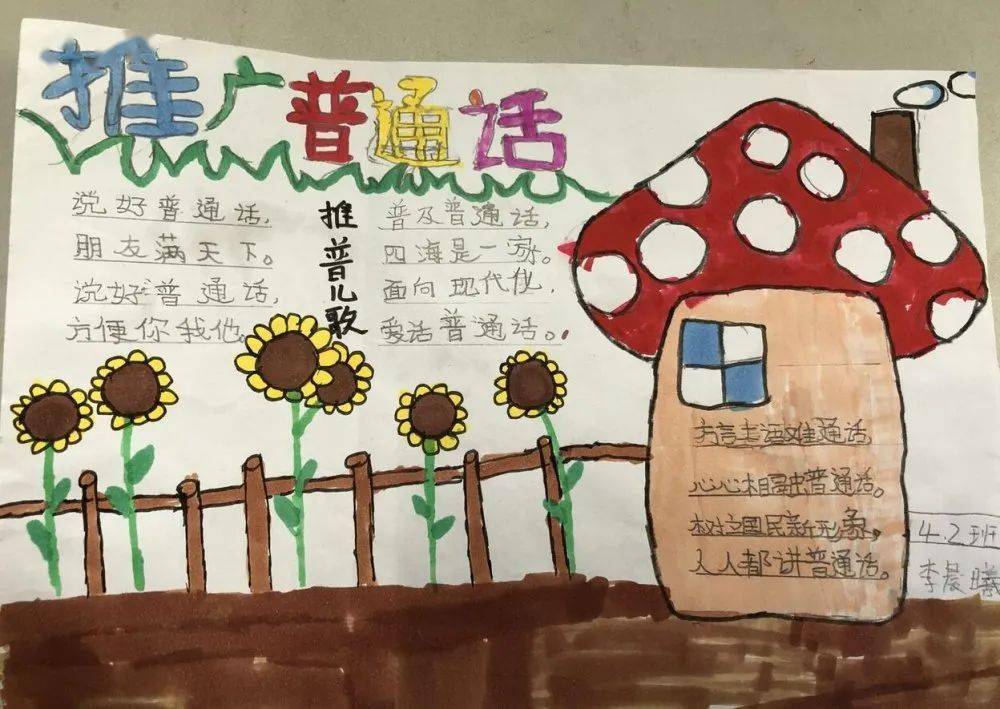 推广普通话
说好普通话,
朋友满天下。
说好普通话,
方便你我他
推普儿歌
普及普通话,
四海是一家。
面向现代化,
爱话普通话。
方言土语难通话,
心心相融普通话。
树立国民新形象,
人人都讲普通话。
4.2班
李晨曦